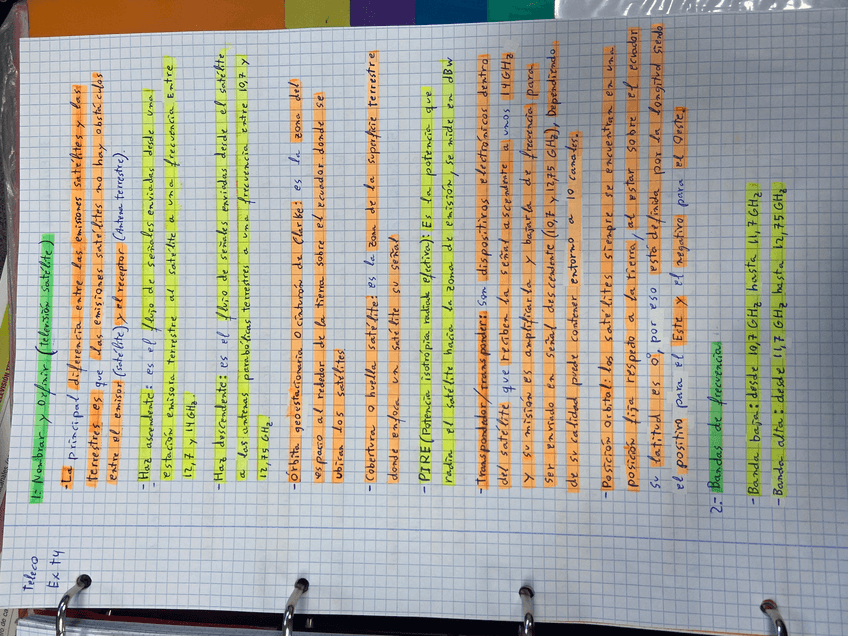 Teleco
Ex t4
1- Nombrar y Definir (televisión satélite)
- La principal diferencia entre las emisiones satélites y las
terrestres es que las emisiones satélites no hay obstáculos
entre el emisor (satélite) y el receptor (Antena terrestre).
- Haz ascendente: es el flujo de señales enviadas desde una
estación emisora terrestre al satélite a una frecuencia Entre
12,7 y 14 GHz.
- Haz descendente: es el flujo de señales enviadas desde el satélite
a las antenas parabólicas terrestres a una frecuencia entre 10,7 y
12,75 GHz
- Orbita geoestacionaria o cinturón de Clarke: es la zona del
espacio al rededor de la tierra sobre el ecuador donde se
ubican los satélites
- Cobertura o huella satélite: es la zona de la superficie terrestre
donde enfoca un satélite su señal
- PIRE (Potencia isotrópia radiada efectiva): Es la potencia que
radia el satélite hacia la zona de emisión, se mide en dBW
- Transpondedor/transponder: son dispositivos electrónicos dentro
del satélite que reciben la señal ascendente a unos 14 GHz
y su misión es amplificarla y bajarla de frecuencia para
ser enviado en señal descendente (10,7 y 12,75 GHz), Dependiendo
de su calidad puede contener entorno a 10 canales.
- Posición orbital: los satélites siempre se encuentran en una
posición fija respeto a la tierra, al estar sobre el ecuador
su latitud es 0°, por eso está definida por la longitud siendo
el positivo para el Este y el negativo para el Oeste.
2.- Bandas de frecuencia
- Banda baja: desde 10,7 GHz hasta 11,7 GHz
- Banda alta: desde 11,7 GHz hasta 12,75 GHz